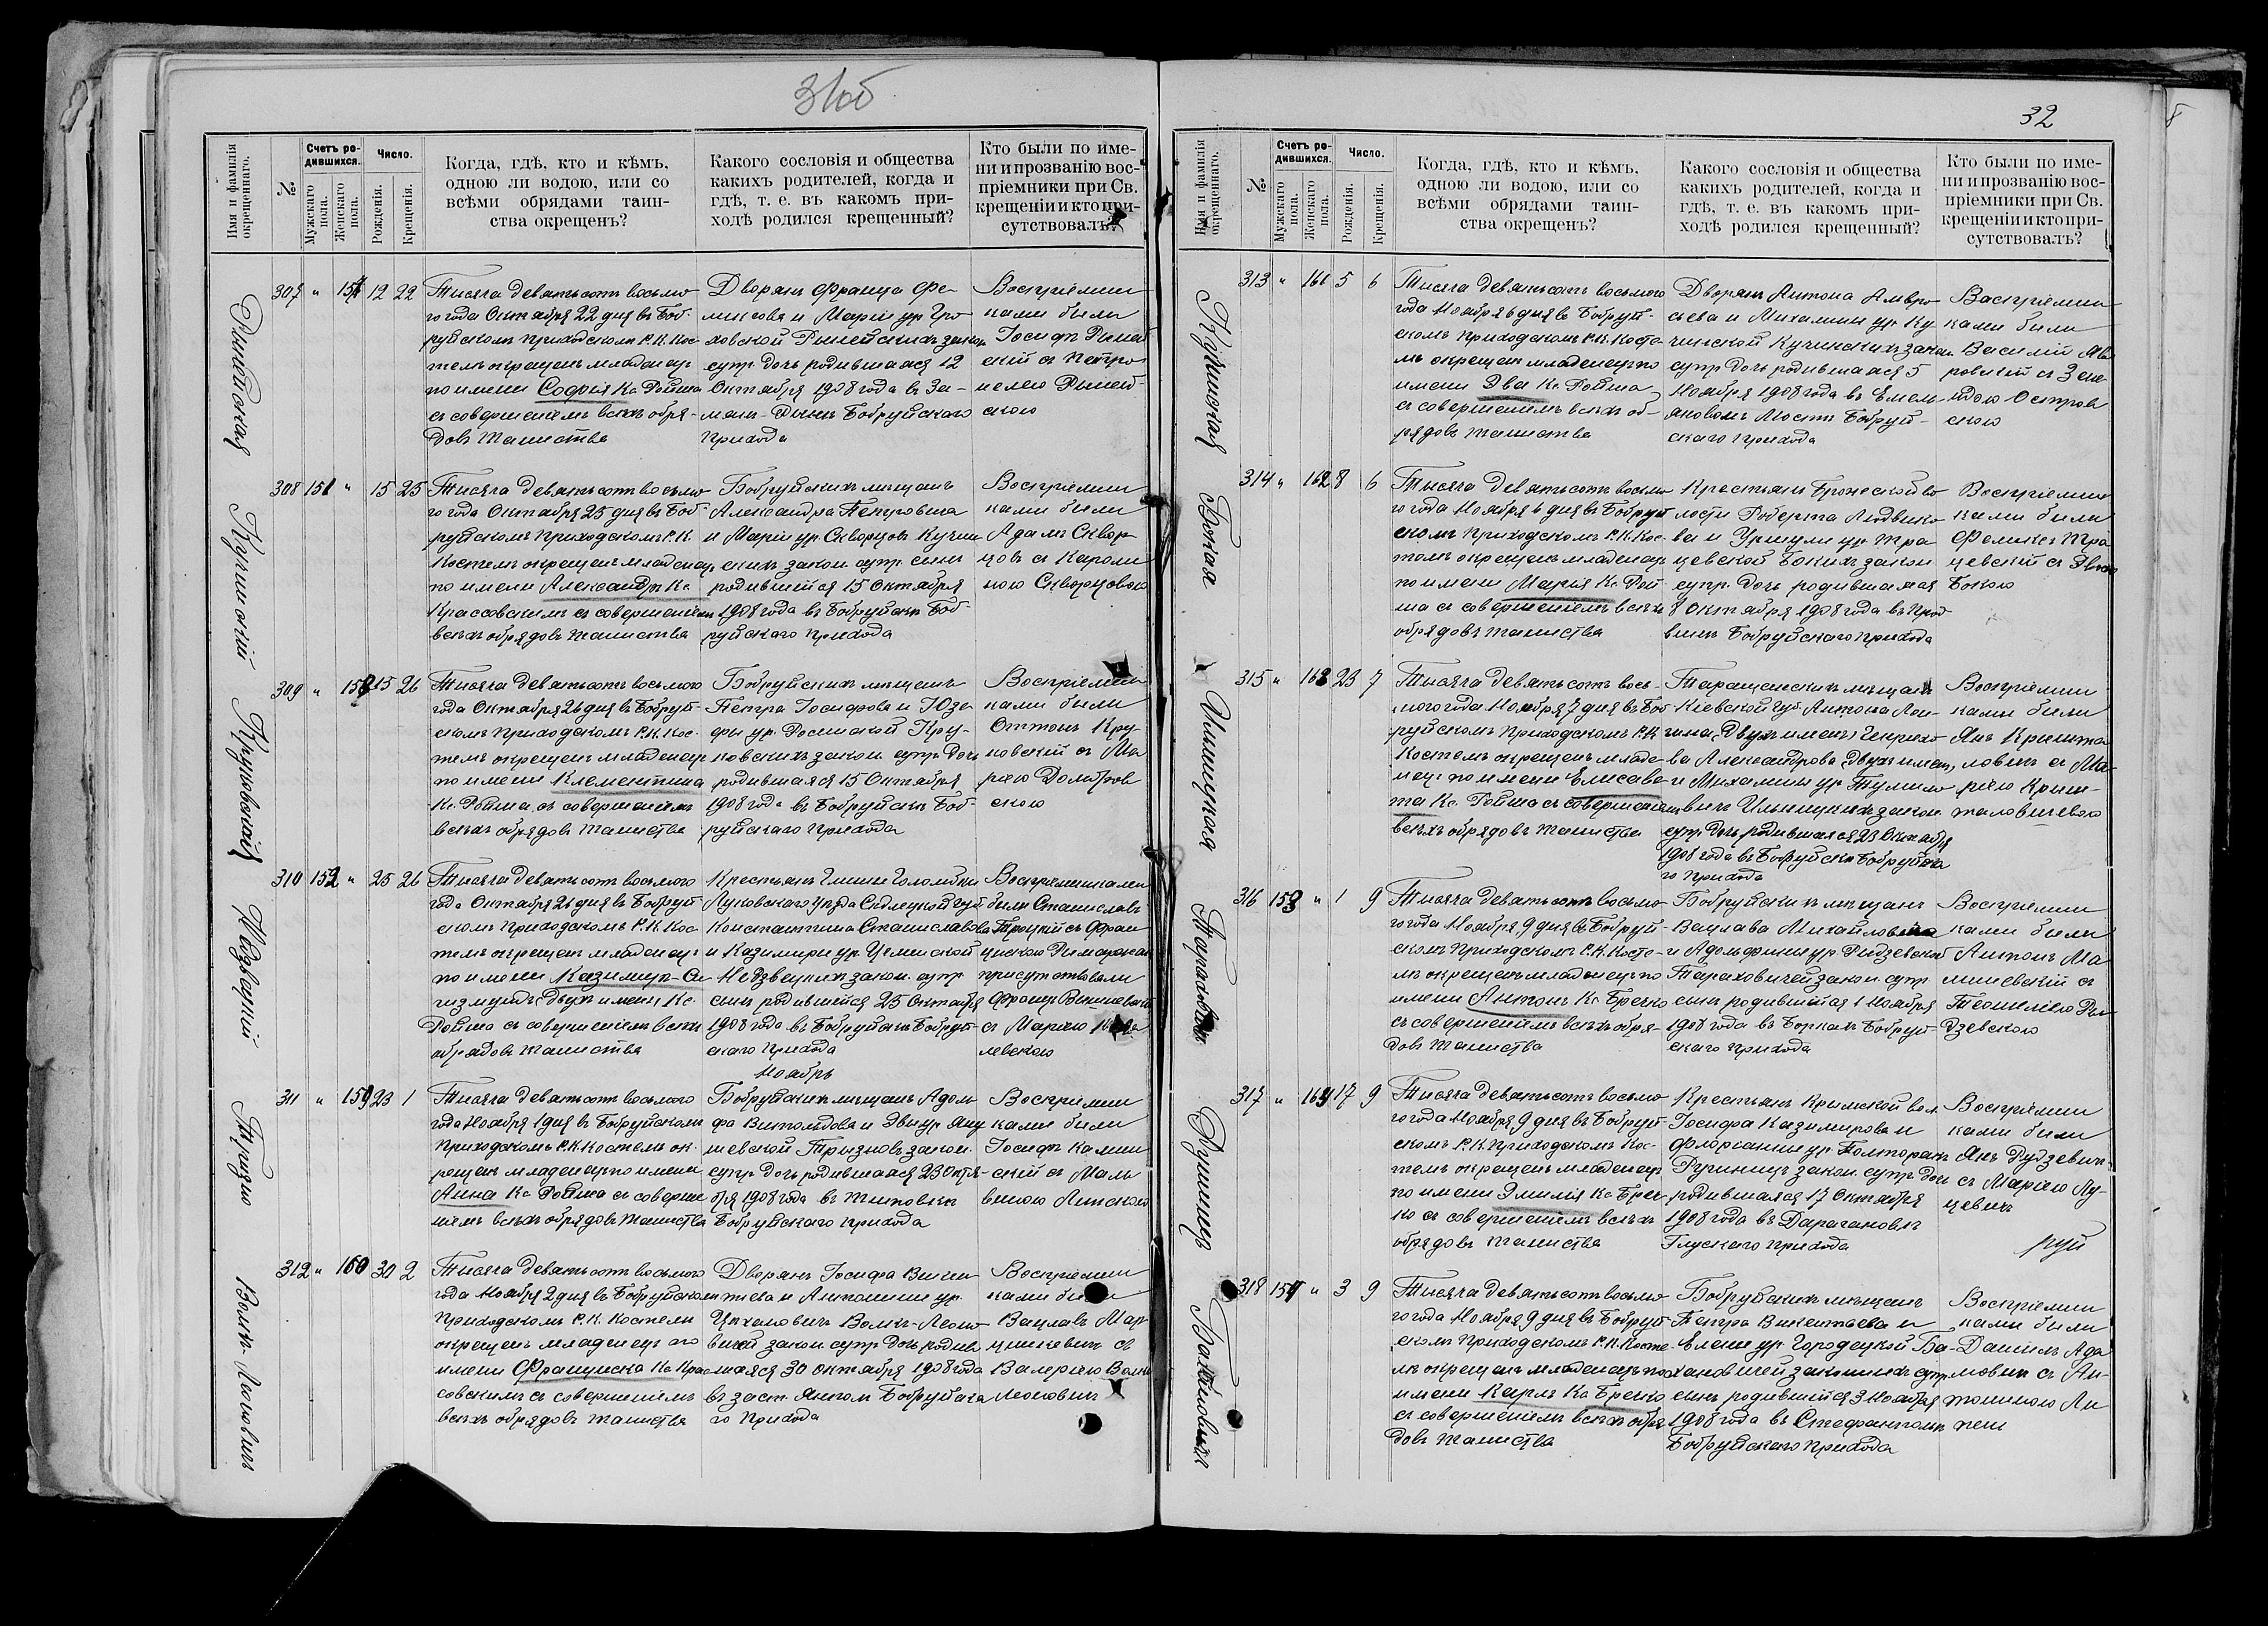 31об
Имя и фамилія окрещеннаго.
№
Счетъ родившихся.
Мужскаго пола.
Женскаго пола.
Число.
Рожденія.
Крещенія.
Когда, гдѣ, кто и кѣмъ,
одною ли водою, или со
всѣми обрядами таин-
ства окрещенъ?
Какого сословія и общества
какихъ родителей, когда и
гдѣ, т. е. въ какомъ при-
ходѣ родился крещенный?
Кто были по име-
ни и прозванію вос-
пріемники при Св.
крещеніи и кто при-
сутствовалъ?
307 " 157 12 22
Тысяча девятьсотъ восьмо
го года Октября 22 дня въ Боб-
руйскомъ приходскомъ Р.К. Кос-
телѣ окрещенъ младенецъ
по имени Софія Кс. Ройша
съ совершеніемъ всѣхъ обря-
довъ таинства
Дворянъ Франца Фе-
ликсова и Маріи ур.
супр. дочь родившаяся 12
Октября 1908 года въ
Бобруйскаго
прихода
Воспріемни
ками были
Іосифъ
скій съ Петро-
нелею
скою
308 151 " 15 25
Кучинскій
Тысяча девятьсотъ восьмо
го года Октября 25 дня въ Боб-
руйскомъ приходскомъ Р.К.
Костелѣ окрещенъ младенецъ
по имени Александръ Кс.
Красовскимъ съ совершеніемъ
всѣхъ обрядовъ таинства
Бобруйскихъ мѣщанъ
Александра Петровича
и Маріи ур. Скворцовъ Кучин
скихъ закон. супр. сынъ
родившійся 15 Октября
1908 года въ Бобруйскѣ Боб-
руйскаго прихода
Воспріемни
ками были
Адамъ Сквор
цовъ съ Кароли
ною Скворцовою
309 " 158 15 26
Круковская
Тысяча девятьсотъ восьмого
года Октября 26 дня въ Бобруй-
скомъ приходскомъ Р.К. Кос-
телѣ окрещенъ младенецъ
по имени Клементина
Кс. Ройша, съ совершеніемъ
всѣхъ обрядовъ таинства
Бобруйскихъ мѣщанъ
Петра Іосифова и Юзе
фы ур. Кру-
ковскихъ закон. супр. дочь
родившаяся 15 Октября
1908 года въ Бобруйскѣ Боб-
руйскаго прихода
Воспріемни
ками были
Оттонъ Кру
ковскій съ Ма
ріею Домбров
скою
310 152 " 25 26
Недзвецкій
Тысяча девятьсотъ восьмого
года Октября 26 дня въ Бобруй-
скомъ приходскомъ Р.К. Кос-
телѣ окрещенъ младенецъ
по имени Казимиръ-Си
гизмундъ (двухъ именъ) Кс.
Ройша съ совершеніемъ всѣхъ
обрядовъ таинства
Крестьянъ Гмины
Луковскаго уѣзда Сѣдлецкой губ.
Константина Станиславова
и Казимиры ур.
Недзвецкихъ закон. супр.
сынъ родившійся 25 Октября
1908 года въ Бобруйскѣ Бобруй-
скаго прихода
Воспріемниками
были Станиславъ
Троцкій съ Фран
цискою
присутствовали
Францъ
съ Маріею
левскою
Ноябрь
311 " 159 23 1
Тризно
Тысяча девятьсотъ восьмого
года Ноября 1 дня въ Бобруйскомъ
приходскомъ Р.К. Костелѣ ок-
рещенъ младенецъ по имени
Анна Кс. Ройша съ соверше
ніемъ всѣхъ обрядовъ таинства
Бобруйскихъ мѣщанъ Адоль
фа Витольдова и Эвы ур. Яну
шевской Тризновъ закон.
супр. дочь родившаяся 23 Октя-
бря 1908 года въ Титовкѣ
Бобруйскаго прихода
Воспріемни
ками были
Іосифъ Камин
скій съ Маль
виною
312 " 160 30 2
Волкъ-Леоновичъ
Тысяча девятьсотъ восьмого
года Ноября 2 дня въ Бобруйскомъ
приходскомъ Р.К. Костелѣ
окрещенъ младенецъ по
имени Франциска Кс. Кра
совскимъ съ совершеніемъ
всѣхъ обрядовъ таинства
Дворянъ Іосифа Викен
тіева и Антонины ур.
Цехановичъ Волкъ-Леоно
вичей закон. супр. дочь родив
шаяся 30 Октября 1908 года
въ заст. Бобруйска
го прихода
Воспріемни
ками были
Вацлавъ Мар
цинкевичъ съ
Валеріею Волкъ
Леоновичъ
32
Имя и фамилія окрещеннаго.
№
Счетъ родившихся.
Мужскаго пола.
Женскаго пола.
Число.
Рожденія.
Крещенія.
Когда, гдѣ, кто и кѣмъ,
одною ли водою, или со
всѣми обрядами таин-
ства окрещенъ?
Какого сословія и общества
какихъ родителей, когда и
гдѣ, т. е. въ какомъ при-
ходѣ родился крещенный?
Кто были по име-
ни и прозванію вос-
пріемники при Св.
крещеніи и кто при-
сутствовалъ?
313 " 161 5 6
Кучинская
Тысяча девятьсотъ восьмого
года Ноября 6 дня въ Бобруй-
скомъ приходскомъ Р.К. Косте-
лѣ окрещенъ младенецъ по
имени Эва Кс. Ройша
съ совершеніемъ всѣхъ об-
рядовъ таинства
Дворянъ Антона Амвро
сіева и Михалины ур. Ку
чинской Кучинскихъ закон.
супр. дочь родившаяся 5
Ноября 1908 года въ Емель
яновомъ Мостѣ Бобруй-
скаго прихода
Воспріемни
ками были
Василій
съ Зене
идою Островс
кою
314 " 162 8 6
Бокая
Тысяча девятьсотъ восьмо
го года Ноября 6 дня въ Бобруй
скомъ приходскомъ Р.К. Кос-
телѣ окрещенъ младенецъ
по имени Марія Кс. Рой
ша съ совершеніемъ всѣхъ
обрядовъ таинства
Крестьянъ Брожеской во
лости Роберта Людвико
ва и Уршули ур. Тра
цевской Бокихъ закон.
супр. дочь родившаяся
8 Октября 1908 года въ
Бобруйскаго прихода
Воспріемни
ками были
Феликсъ Тра
цевскій съ Эвою
Бокою
315 " 163 23 7
Ильницкая
Тысяча девятьсотъ вось-
мого года Ноября 7 дня въ Боб
руйскомъ приходскомъ Р.К.
Костелѣ окрещенъ младе-
нецъ по имени Елисаве-
та Кс. Ройша съ совершеніемъ
всѣхъ обрядовъ таинства
Таращанскихъ мѣщанъ
Кіевской губ. Антона Лон-
гина (двухъ именъ) Генрихо
ва Александрова (двухъ именъ)
и Михалины ур.
вичъ Ильницкихъ закон.
супр. дочь родившаяся 23 Октября
1908 года въ Бобруйскѣ Бобруйска
го прихода
Воспріемни
ками были
Янъ Кришта
ловичъ съ Ма-
ріею Криш-
таловичевою
316 153 " 1 9
Тараховичъ
Тысяча девятьсотъ восьмо
го года Ноября 9 дня въ Бобруй-
скомъ приходскомъ Р.К. Косте-
лѣ окрещенъ младенецъ по
имени Антонъ Кс. Бречко
съ совершеніемъ всѣхъ обря-
довъ таинства
Бобруйскихъ мѣщанъ
Вацлава Михайлова
и Адольфины ур. Рыдзевской
Тараховичей закон. супр.
сынъ родившійся 1 Ноября
1908 года въ Боркахъ Бобруй-
скаго прихода
Воспріемни
ками были
Антонъ Ма
шевскій съ
Теофилею Ры
дзевскою
317 " 164 17 9
Тысяча девятьсотъ восьмо
го года Ноября 9 дня въ Бобруй-
скомъ Р.К. приходскомъ Кос-
телѣ окрещенъ младенецъ
по имени Эмилія Кс. Бреч-
ко съ совершеніемъ всѣхъ
обрядовъ таинства
Крестьянъ Крымской вол.
Іосифа Казимирова и
Флоріанны ур. Полторакъ
закон. супр. дочь
родившаяся 17 Октября
1908 года въ Дарагановѣ
Глускаго прихода
Воспріемни
ками были
Янъ Рудзевич
съ Маріею Лу-
цевичъ
318 154 " 3 9
Бахановичъ
Тысяча девятьсотъ восьмо
го года Ноября 9 дня въ Бобруй-
скомъ приходскомъ Р.К. Косте
лѣ окрещенъ младенецъ по
имени Карлъ Кс. Бречко
съ совершеніемъ всѣхъ обря
довъ таинства
Бобруйскихъ мѣщанъ
Петра Викентьева и
Елены ур. Городецкой Ба-
хановичей законныхъ супр.
сынъ родившійся 3 Ноября
1908 года въ Стефанполѣ
Бобруйскаго прихода
Воспріемни
ками были
Даніилъ Ада
мовичъ съ Ан-
тониною